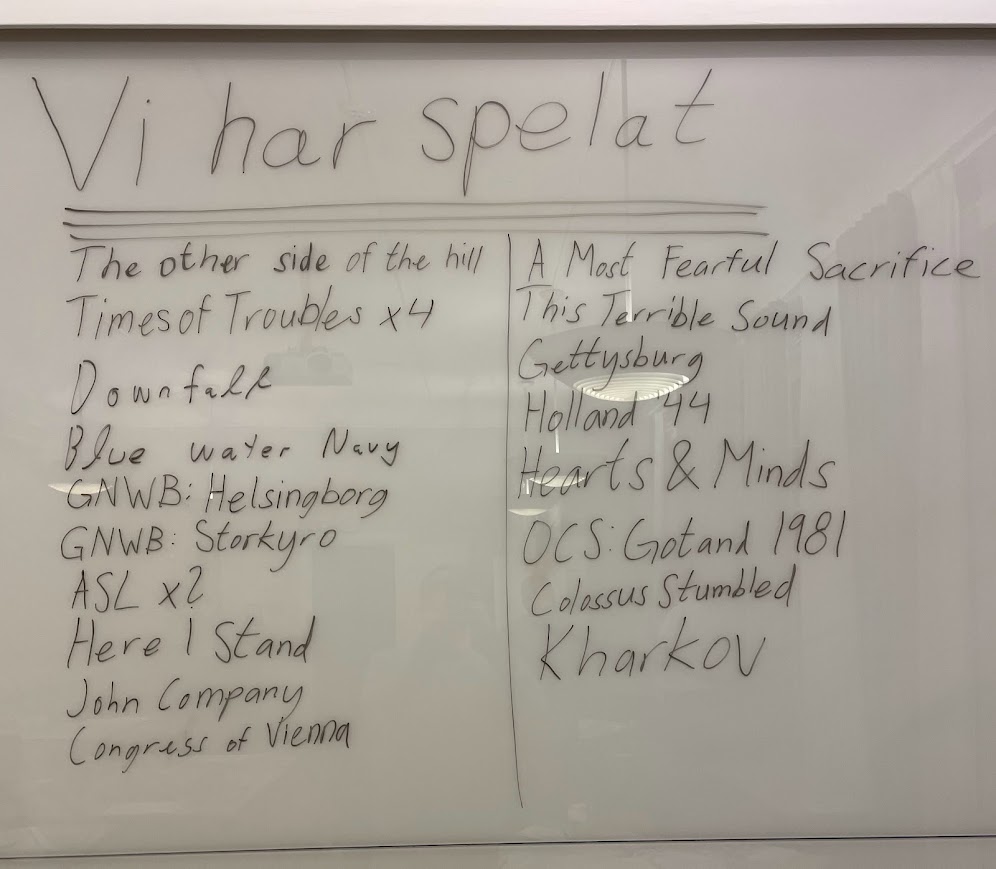 Vi har spelat
The other side of the hill
Times of Troubles x4
Downfall
Blue water Navy
GNWB: Helsingborg
GNWB: Storkyro
ASL x2
Here I Stand
John Company
Congress of Vienna
A Most Fearful Sacrifice
This Terrible Sound
Gettysburg
Holland '44
Hearts & Minds
OCS: Gotand 1981
Colossus Stumbled
Kharkov